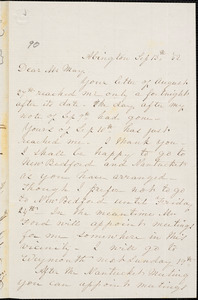 90
Abington Sept 15th 52
Dear Mr May
Your letter of August
27th reached me only a fortnight
after its date. The day after my
note of Sept 9th had gone.
Yours of Sept 10th has just
reached me. I thank you.
I shall be happy to go to
New Bedford and Nantucket
as you have arranged.
Though I prefer not to go
to New Bedford until Friday
24th. In the meantime Mr
Ford will appoint meetings
for me somewhere in this
vicinity. I will go to
Weymouth Wednesday
After the Nantucket meeting
you can appoint meetings